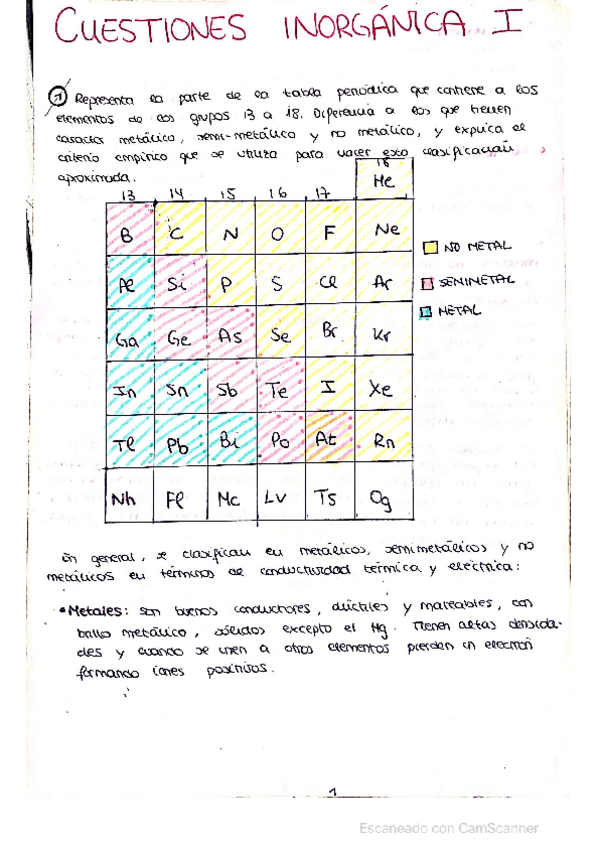 CUESTIONES INORGÁNICA I
① Representa la parte de la tabla periódica que contiene a los
elementos de los grupos 13 a 18. Diferencia a los que tienen
carácter metálico, semi-metálico y no metálico, y explica el
criterio empírico que se utiliza para hacer esta clasificación
aproximada.
13 14 15 16 17 18
He
B C N O F Ne
Al Si P S Cl Ar
Ga Ge As Se Br Kr
In Sn Sb Te I Xe
Tl Pb Bi Po At Rn
Nh Fl Mc Lv Ts Og
NO METAL
SEMIMETAL
METAL
En general, se clasifican en metálicos, semimetálicos y no
metálicos en términos de conductividad térmica y eléctrica:
• Metales: son buenos conductores, dúctiles y maleables, con
brillo metálico, sólidos excepto el Hg. Tienen altas densida-
des y cuando se unen a otros elementos pierden un electrón
formando iones positivos.
1
Escaneado con CamScanner